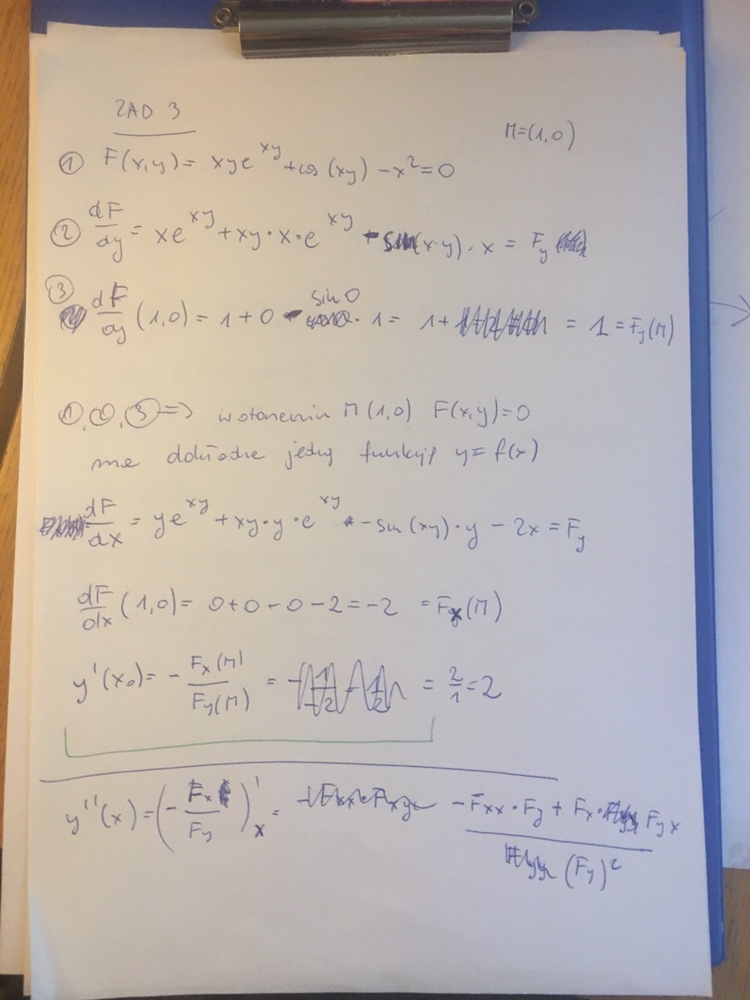 ZAD 3
M=(1,0)
① F(x,y) = xye^{xy} + cos(xy) - x² = 0
② dF/dy = xe^{xy} + xy·x·e^{xy} - sin(x·y)·x = F_y
③ dF/dy (1,0) = 1+0 - sin0 · 1 = 1+ = 1 = F_y(M)
①,②,③ => w otoczeniu M(1,0) F(x,y)=0
ma dokładnie jedną funkcję y=f(x)
dF/dx = ye^{xy} + xy·y·e^{xy} - sin(xy)·y - 2x = F_y
dF/dx (1,0) = 0+0-0-2 = -2 = F_x(M)
y'(x₀) = - F_x(M)/F_y(M) = = 2/1 = 2
y''(x) = (- F_x/F_y)'_x = (-F_xx·F_y + F_x·F_yx)/(F_y)²